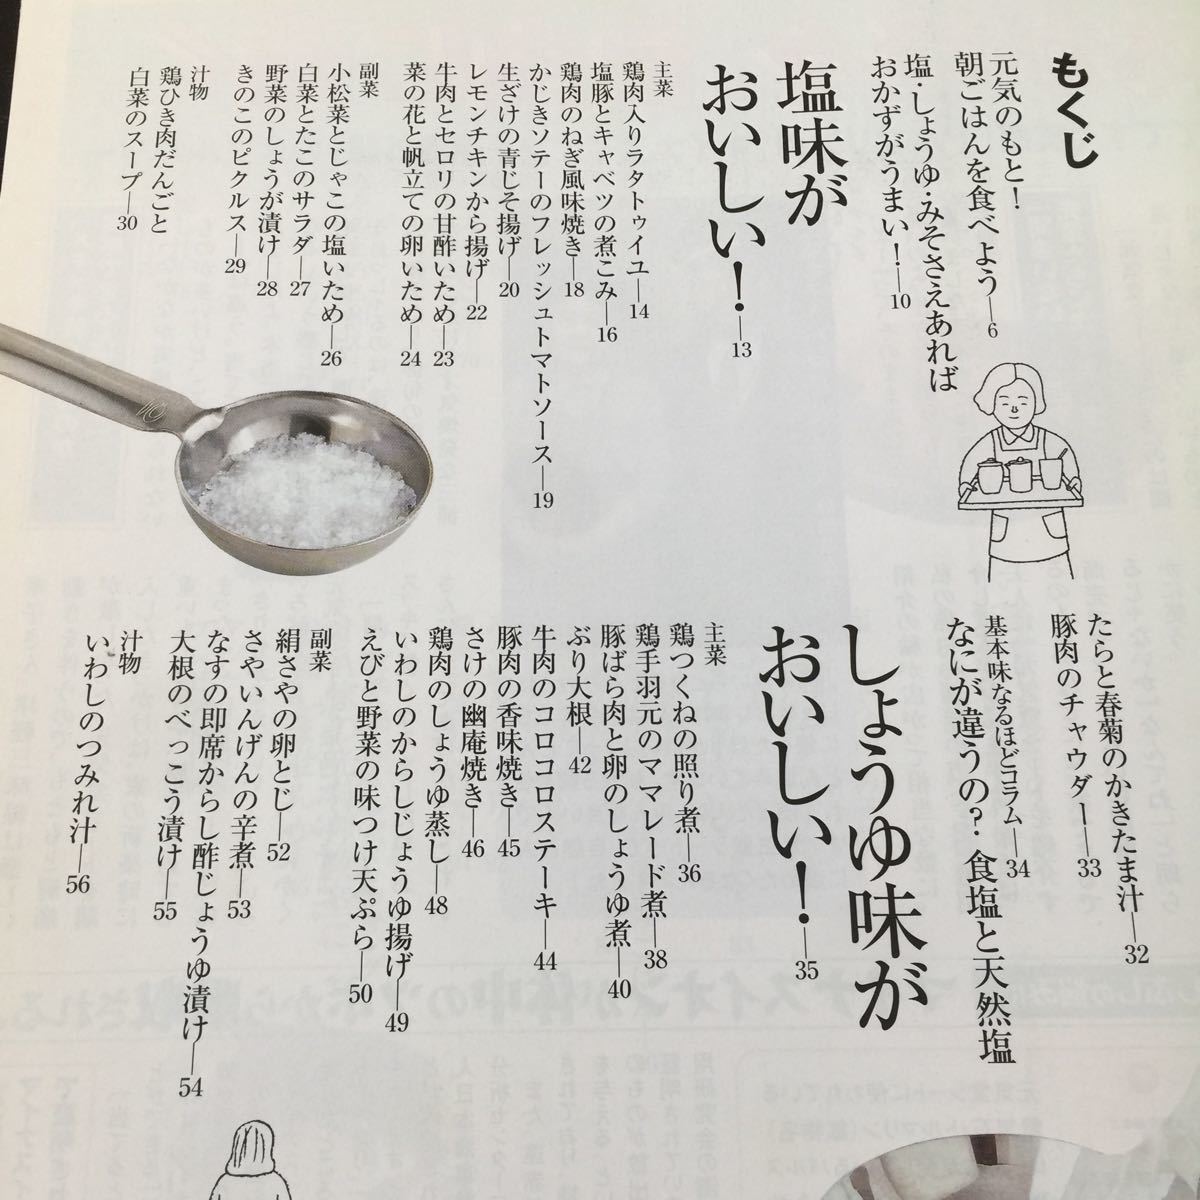 もくじ
元気のもと!
朝ごはんを食べよう—6
塩・しょうゆ・みそさえあれば
おかずがうまい!—10
塩味が
おいしい!—13
主菜
鶏肉入りラタトゥイユ—14
塩豚とキャベツの煮こみ—16
鶏肉のねぎ風味焼き—18
かじきソテーのフレッシュトマトソース—19
生ざけの青じそ揚げ—20
レモンチキンから揚げ—22
牛肉とセロリの甘酢いため—23
菜の花と帆立ての卵いため—24
副菜
小松菜とじゃこの塩いため—26
白菜とたこのサラダ—27
野菜のしょうが漬け—28
きのこのピクルス—29
汁物
鶏ひき肉だんごと
白菜のスープ—30
たらと春菊のかきたま汁—32
豚肉のチャウダー—33
基本味なるほどコラム—34
なにが違うの?食塩と天然塩
しょうゆ味が
おいしい!—35
主菜
鶏つくねの照り煮—36
鶏手羽元のママレード煮—38
豚ばら肉と卵のしょうゆ煮—40
ぶり大根—42
牛肉のコロコロステーキ—44
豚肉の香味焼き—45
さけの幽庵焼き—46
鶏肉のしょうゆ蒸し—48
いわしのからしじょうゆ揚げ—49
えびと野菜の味つけ天ぷら—50
副菜
絹さやの卵とじ—52
さやいんげんの辛煮—53
なすの即席からし酢じょうゆ漬け—54
大根のべっこう漬け—55
汁物
いわしのつみれ汁—56